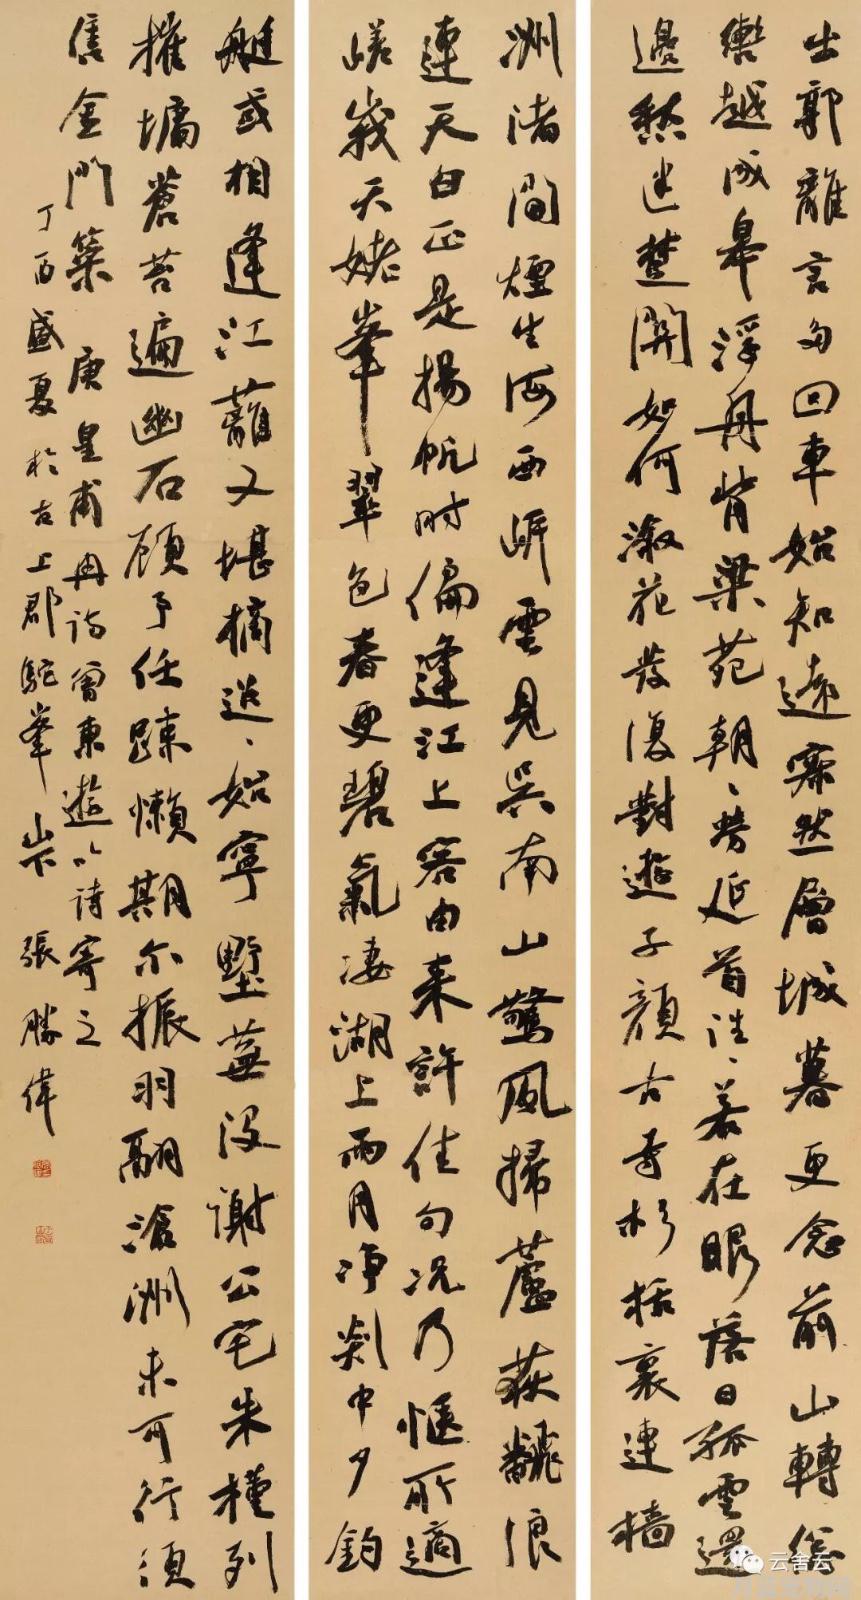 出郭離言多回車始知遠寂然層城暮更念前山轉總
轡越成皋浮舟背梁苑朝、勞延首往、若在眼落日孤雲還
邊愁迷楚關如何淑花發復對遊子顏古寺杉栝裏連檣
洲渚間煙生海西岸雲見吳南山驚風掃蘆荻翻浪
連天白正是揚帆時偏逢江上客由來許佳句況乃愜所適
嵯峨天姥峯翠色春更碧氣淒湖上雨月淨剡中夕釣
艇或相逢江蘺又堪摘迢、始寧墅蕪沒謝公宅朱槿列
摧墉蒼苔遍幽石顧予任疎懶期尔振羽翮滄洲未可行須
售金門策 唐皇甫冉詩曾東遊以詩寄之
丁酉盛夏於古上郡駝峯山下 張勝偉
云舍云